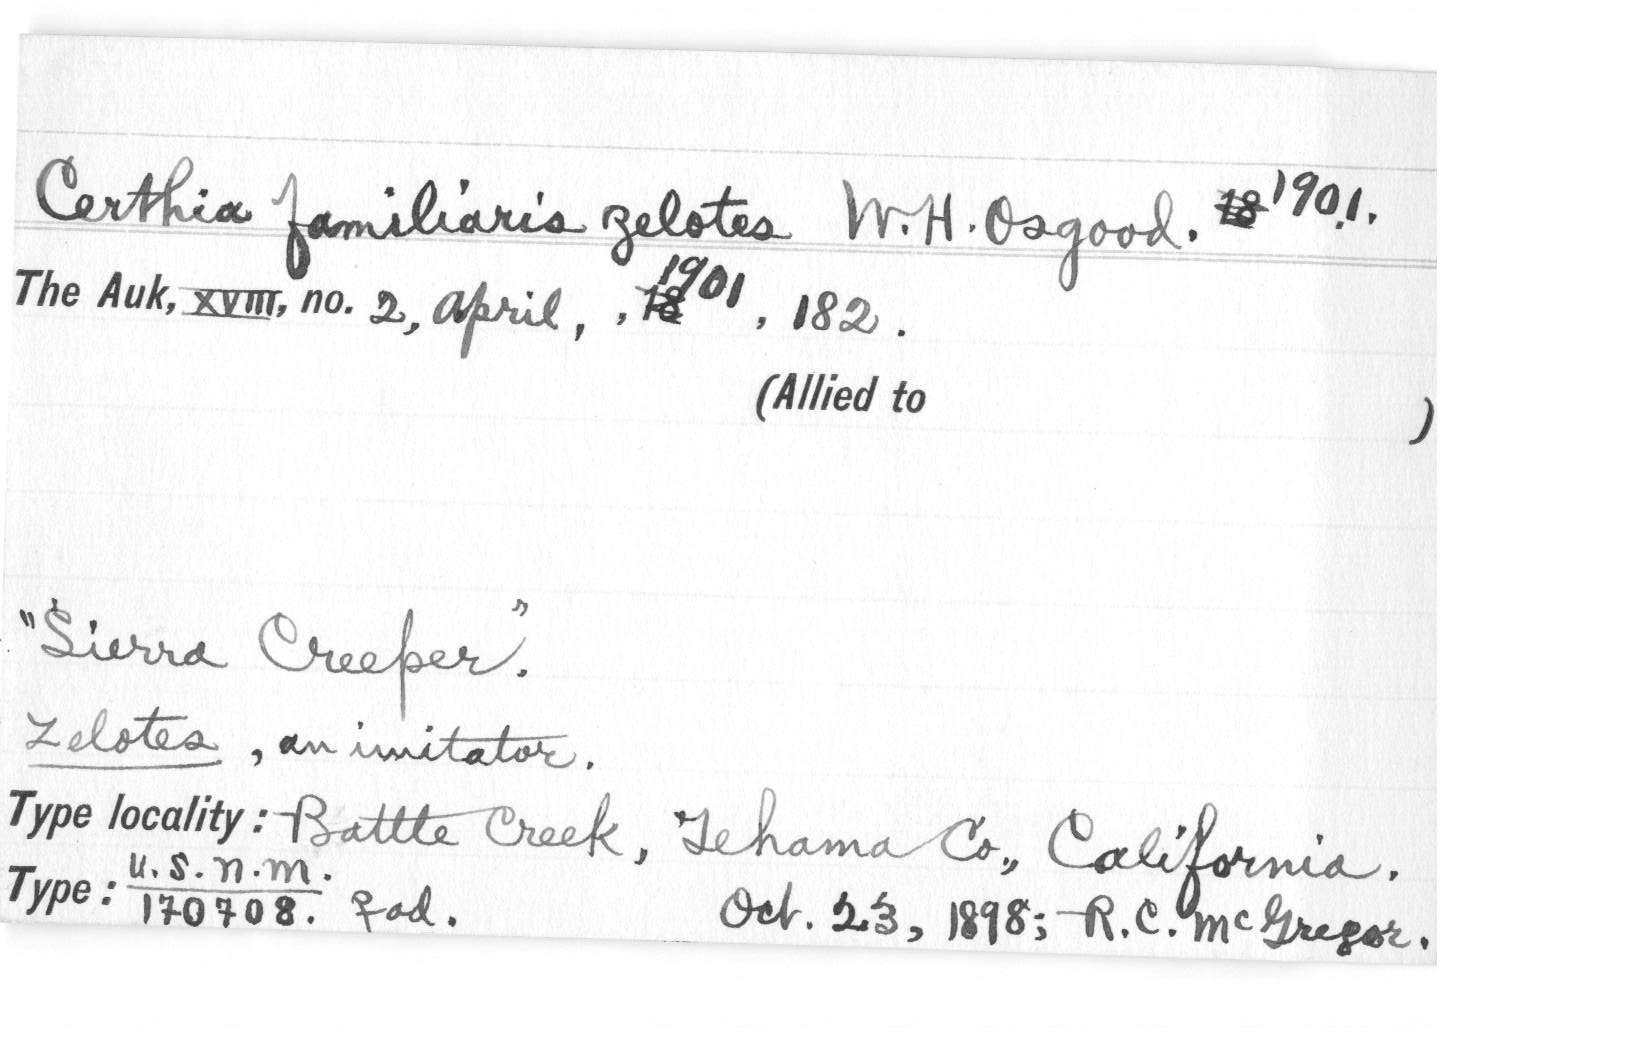 Certhia familiaris zelotes W.H. Osgood. 18 1901.
The Auk, XVIII, no. 2, April, , 18 1901, 182.
(Allied to )
"Sierra Creeper".
Zelotes, an imitator.
Type locality: Battle Creek, Tehama Co., California.
Type: U.S.N.M.
170708. ♀ ad. Oct. 23, 1898; R.C. McGregor.